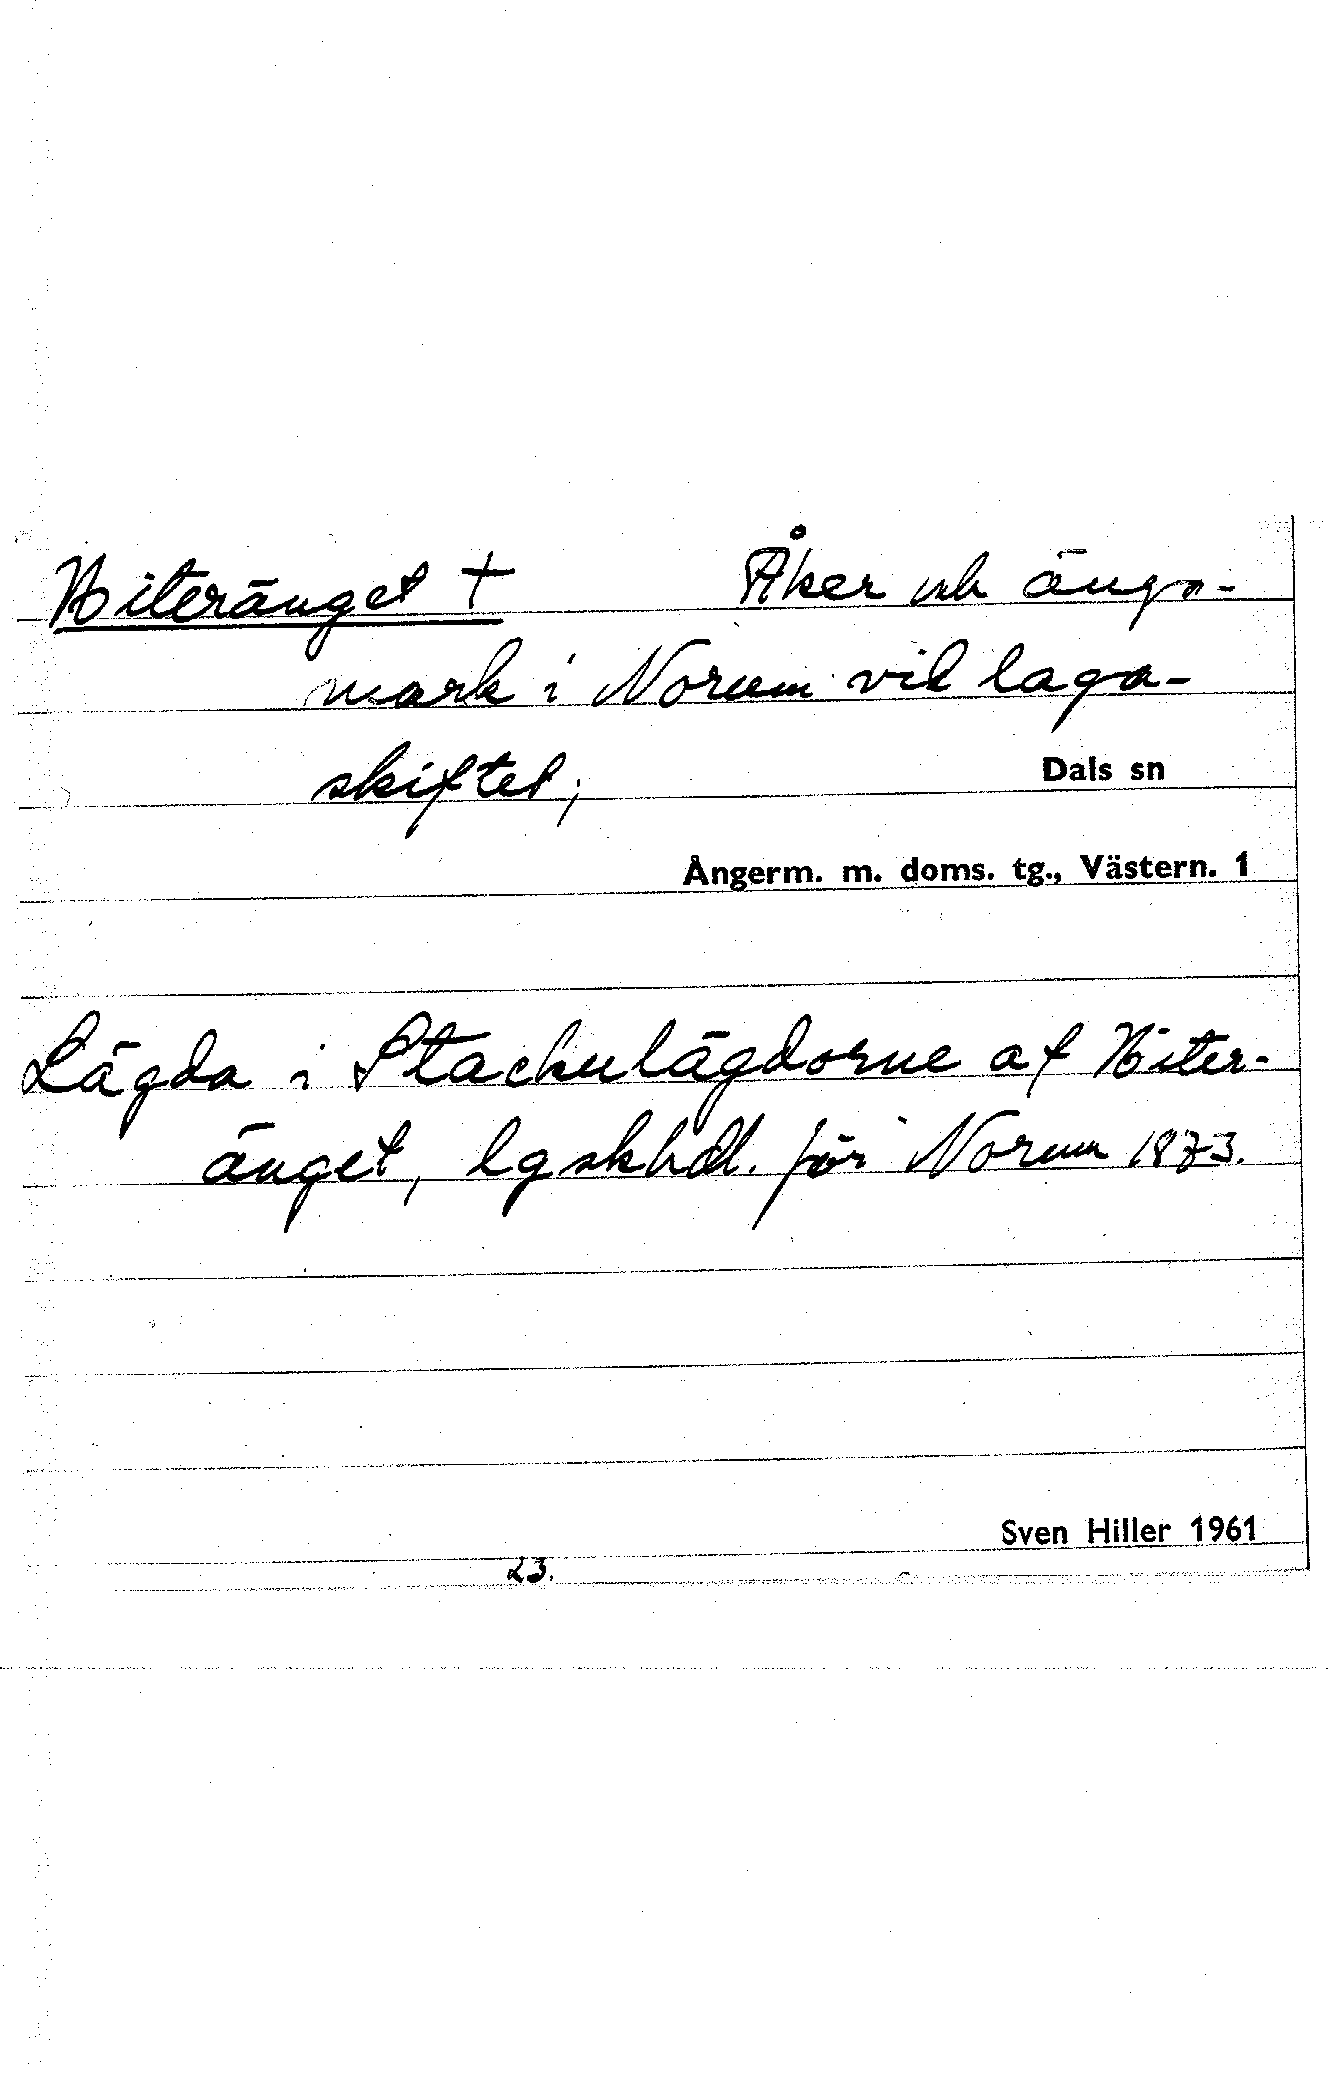 Hiteränget + Åker och ängs-
mark i Norum vid laga-
skiftet;
Dals sn
Ångerm. m. doms. tg., Västern. 1
Lägda i Stackulägdorne af Hiter-
änget, lgskhdl. för Norum 1873.
Sven Hiller 1961
23.